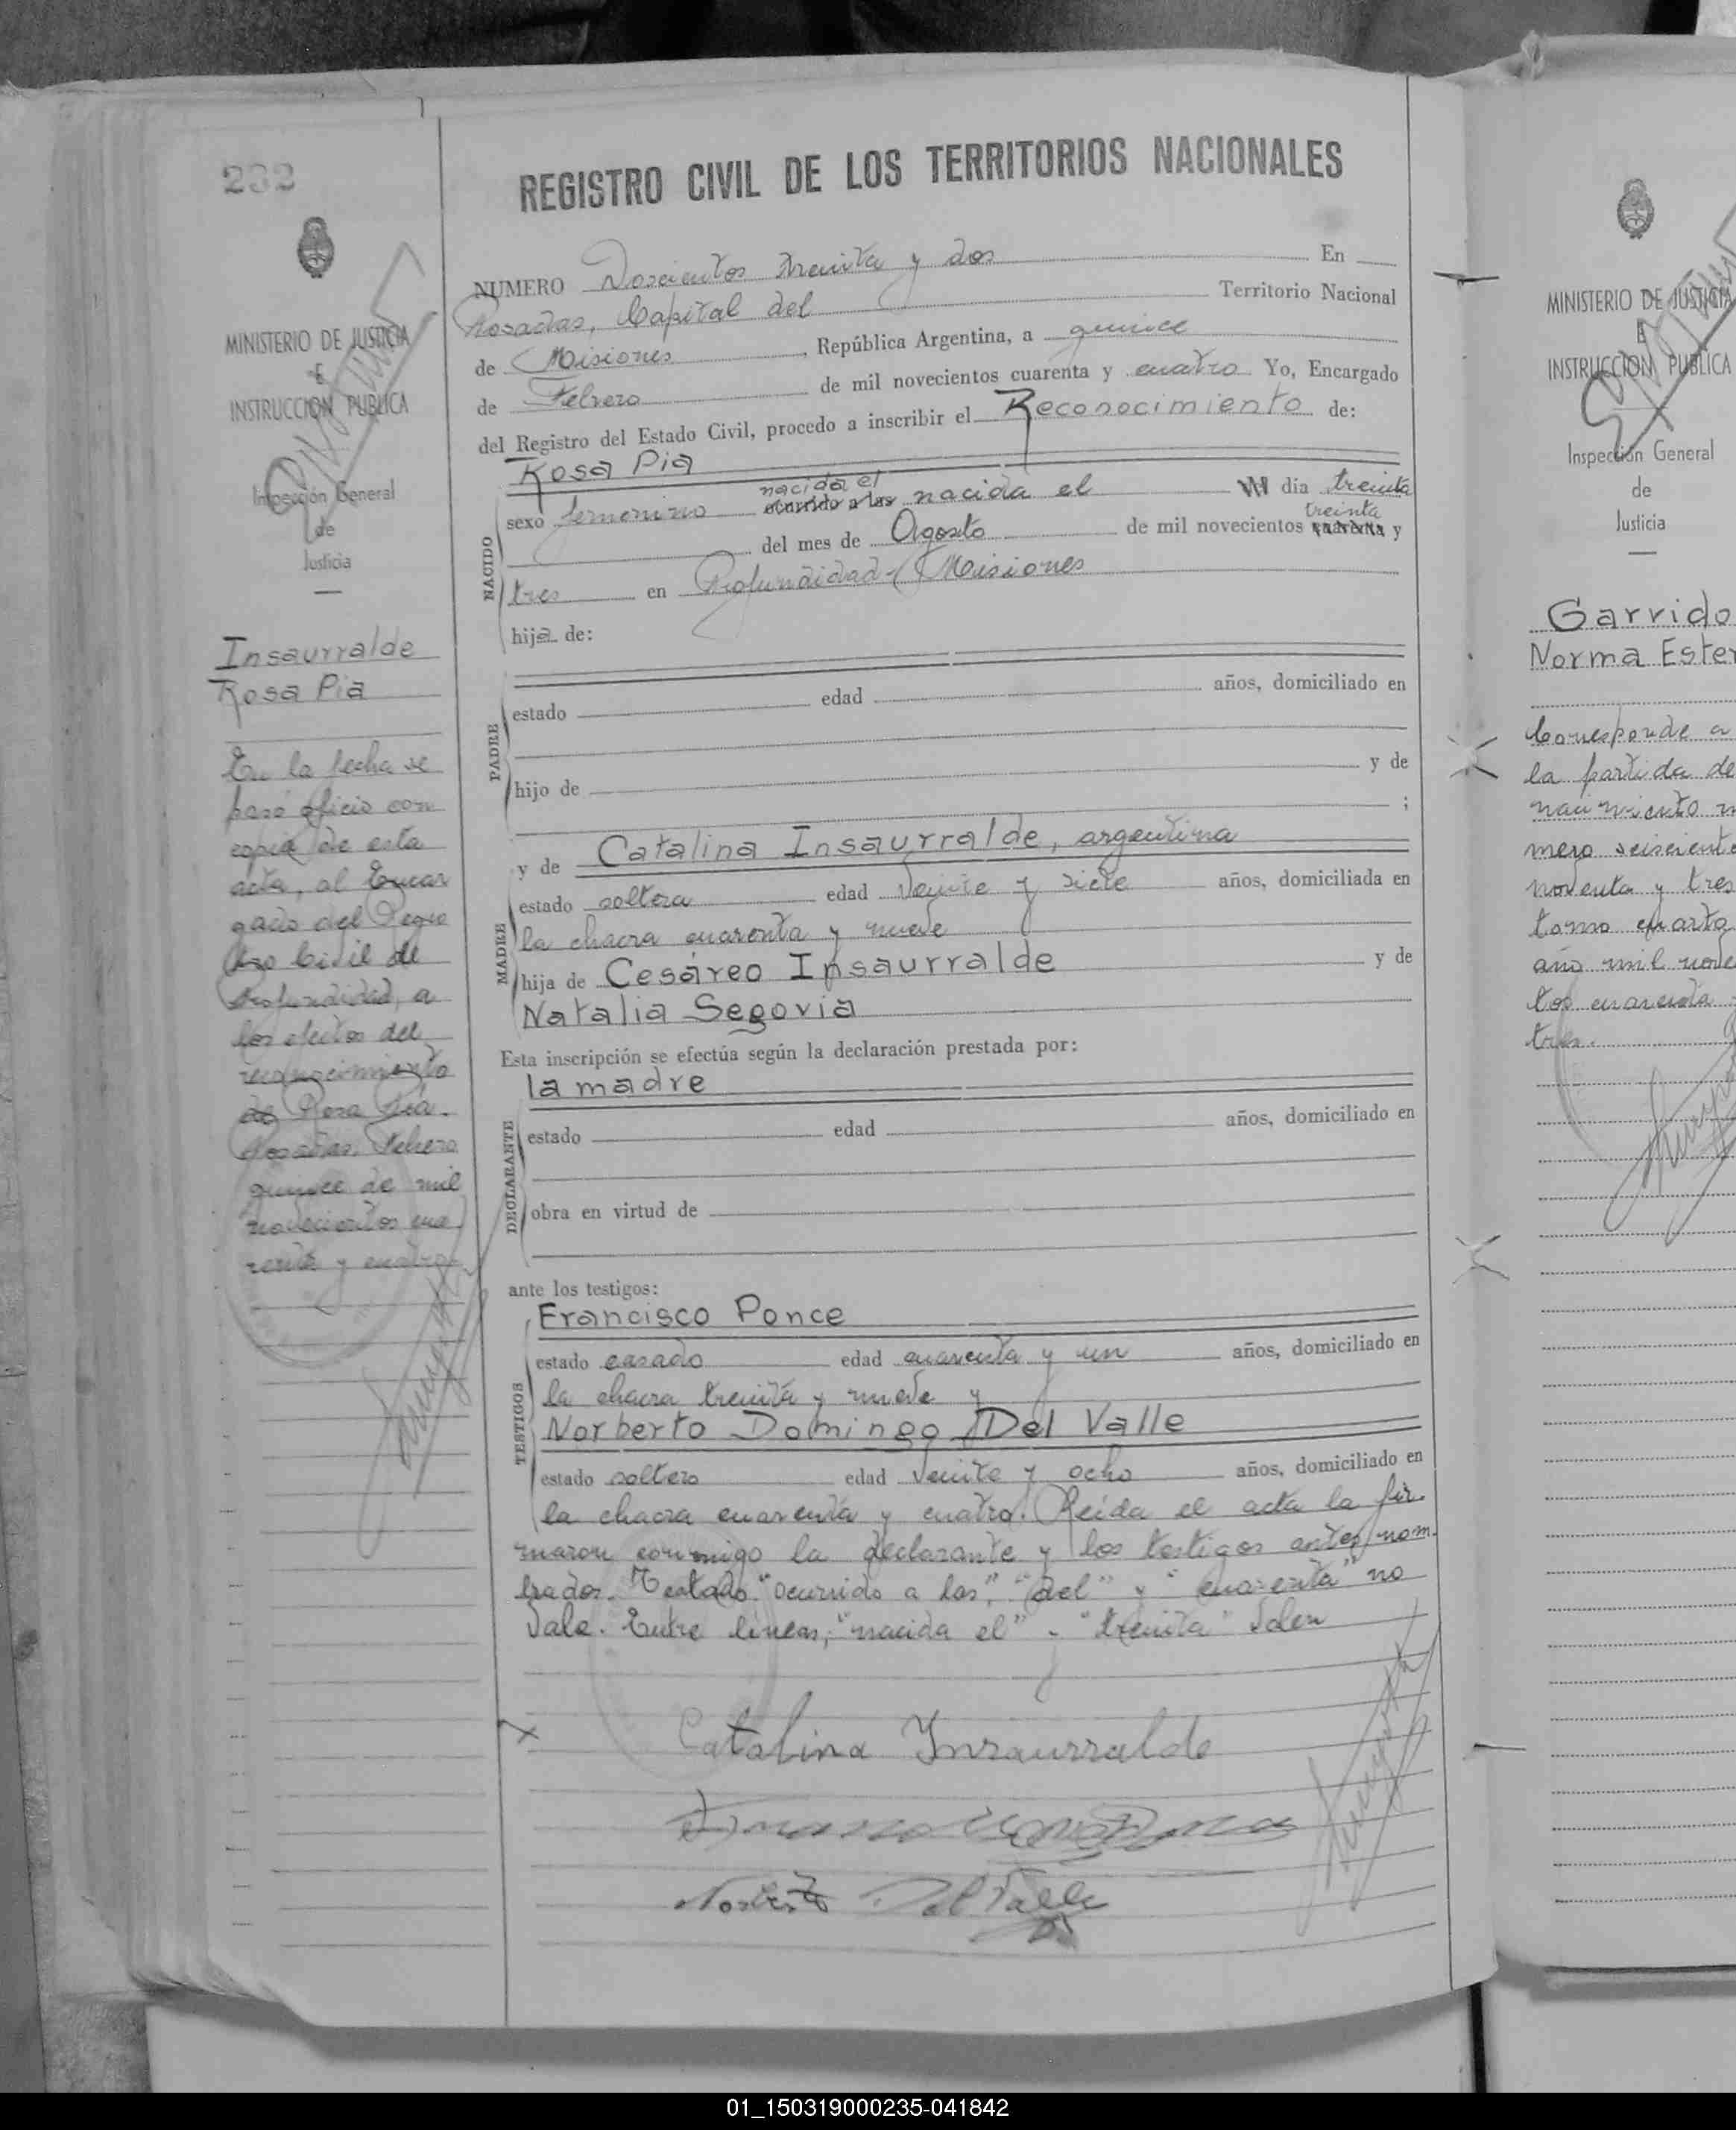 232
MINISTERIO DE JUSTICIA
E
INSTRUCCION PUBLICA
Inspección General
de
Justicia
Insaurralde
Rosa Pia
En la fecha se
pasó oficio con
copia de esta
acta, al Encar
gado del Regis
tro Civil de
Profundidad, a
los efectos del
reconocimiento
de Rosa Pia.
Posadas, Febrero
quince de mil
novecientos cua
renta y cuatro
REGISTRO CIVIL DE LOS TERRITORIOS NACIONALES
NUMERO Doscientos treinta y dos En
Posadas, Capital del Territorio Nacional
de Misiones, República Argentina, a quince
de Febrero de mil novecientos cuarenta y cuatro Yo, Encargado
del Registro del Estado Civil, procedo a inscribir el Reconocimiento de:
Rosa Pia
nacida el
sexo femenino ocurrido a las nacida el día treinta
treinta
del mes de Agosto de mil novecientos cuarenta y
NACIDO
tres en Profundidad-Misiones
hija de:
PADRE
estado edad años, domiciliado en
hijo de y de
;
y de Catalina Insaurralde, argentina
MADRE
estado soltera edad veinte y siete años, domiciliada en
la chacra cuarenta y nueve
hija de Cesáreo Insaurralde y de
Natalia Segovia
Esta inscripción se efectúa según la declaración prestada por:
la madre
DECLARANTE
estado edad años, domiciliado en
obra en virtud de
ante los testigos:
Francisco Ponce
TESTIGOS
estado casado edad cuarenta y un años, domiciliado en
la chacra treinta y nueve y
Norberto Domingo Del Valle
estado soltero edad veinte y ocho años, domiciliado en
la chacra cuarenta y cuatro. Leída el acta la fir-
maron conmigo la declarante y los testigos antes nom-
brados. Testado: "ocurrido a las", "del" y "cuarenta" no
vale. Entre líneas, "nacida el" - "treinta" valen
Catalina Insaurralde
Norberto Del Valle
MINISTERIO DE JUSTICIA
E
INSTRUCCION PUBLICA
Inspección General
de
Justicia
Garrido
Norma Ester
Corresponde a
la partida de
nacimiento nu
mero seiscientos
noventa y tres
tomo cuarto
año mil nove
tos cuarenta y
tres.
01_150319000235-041842